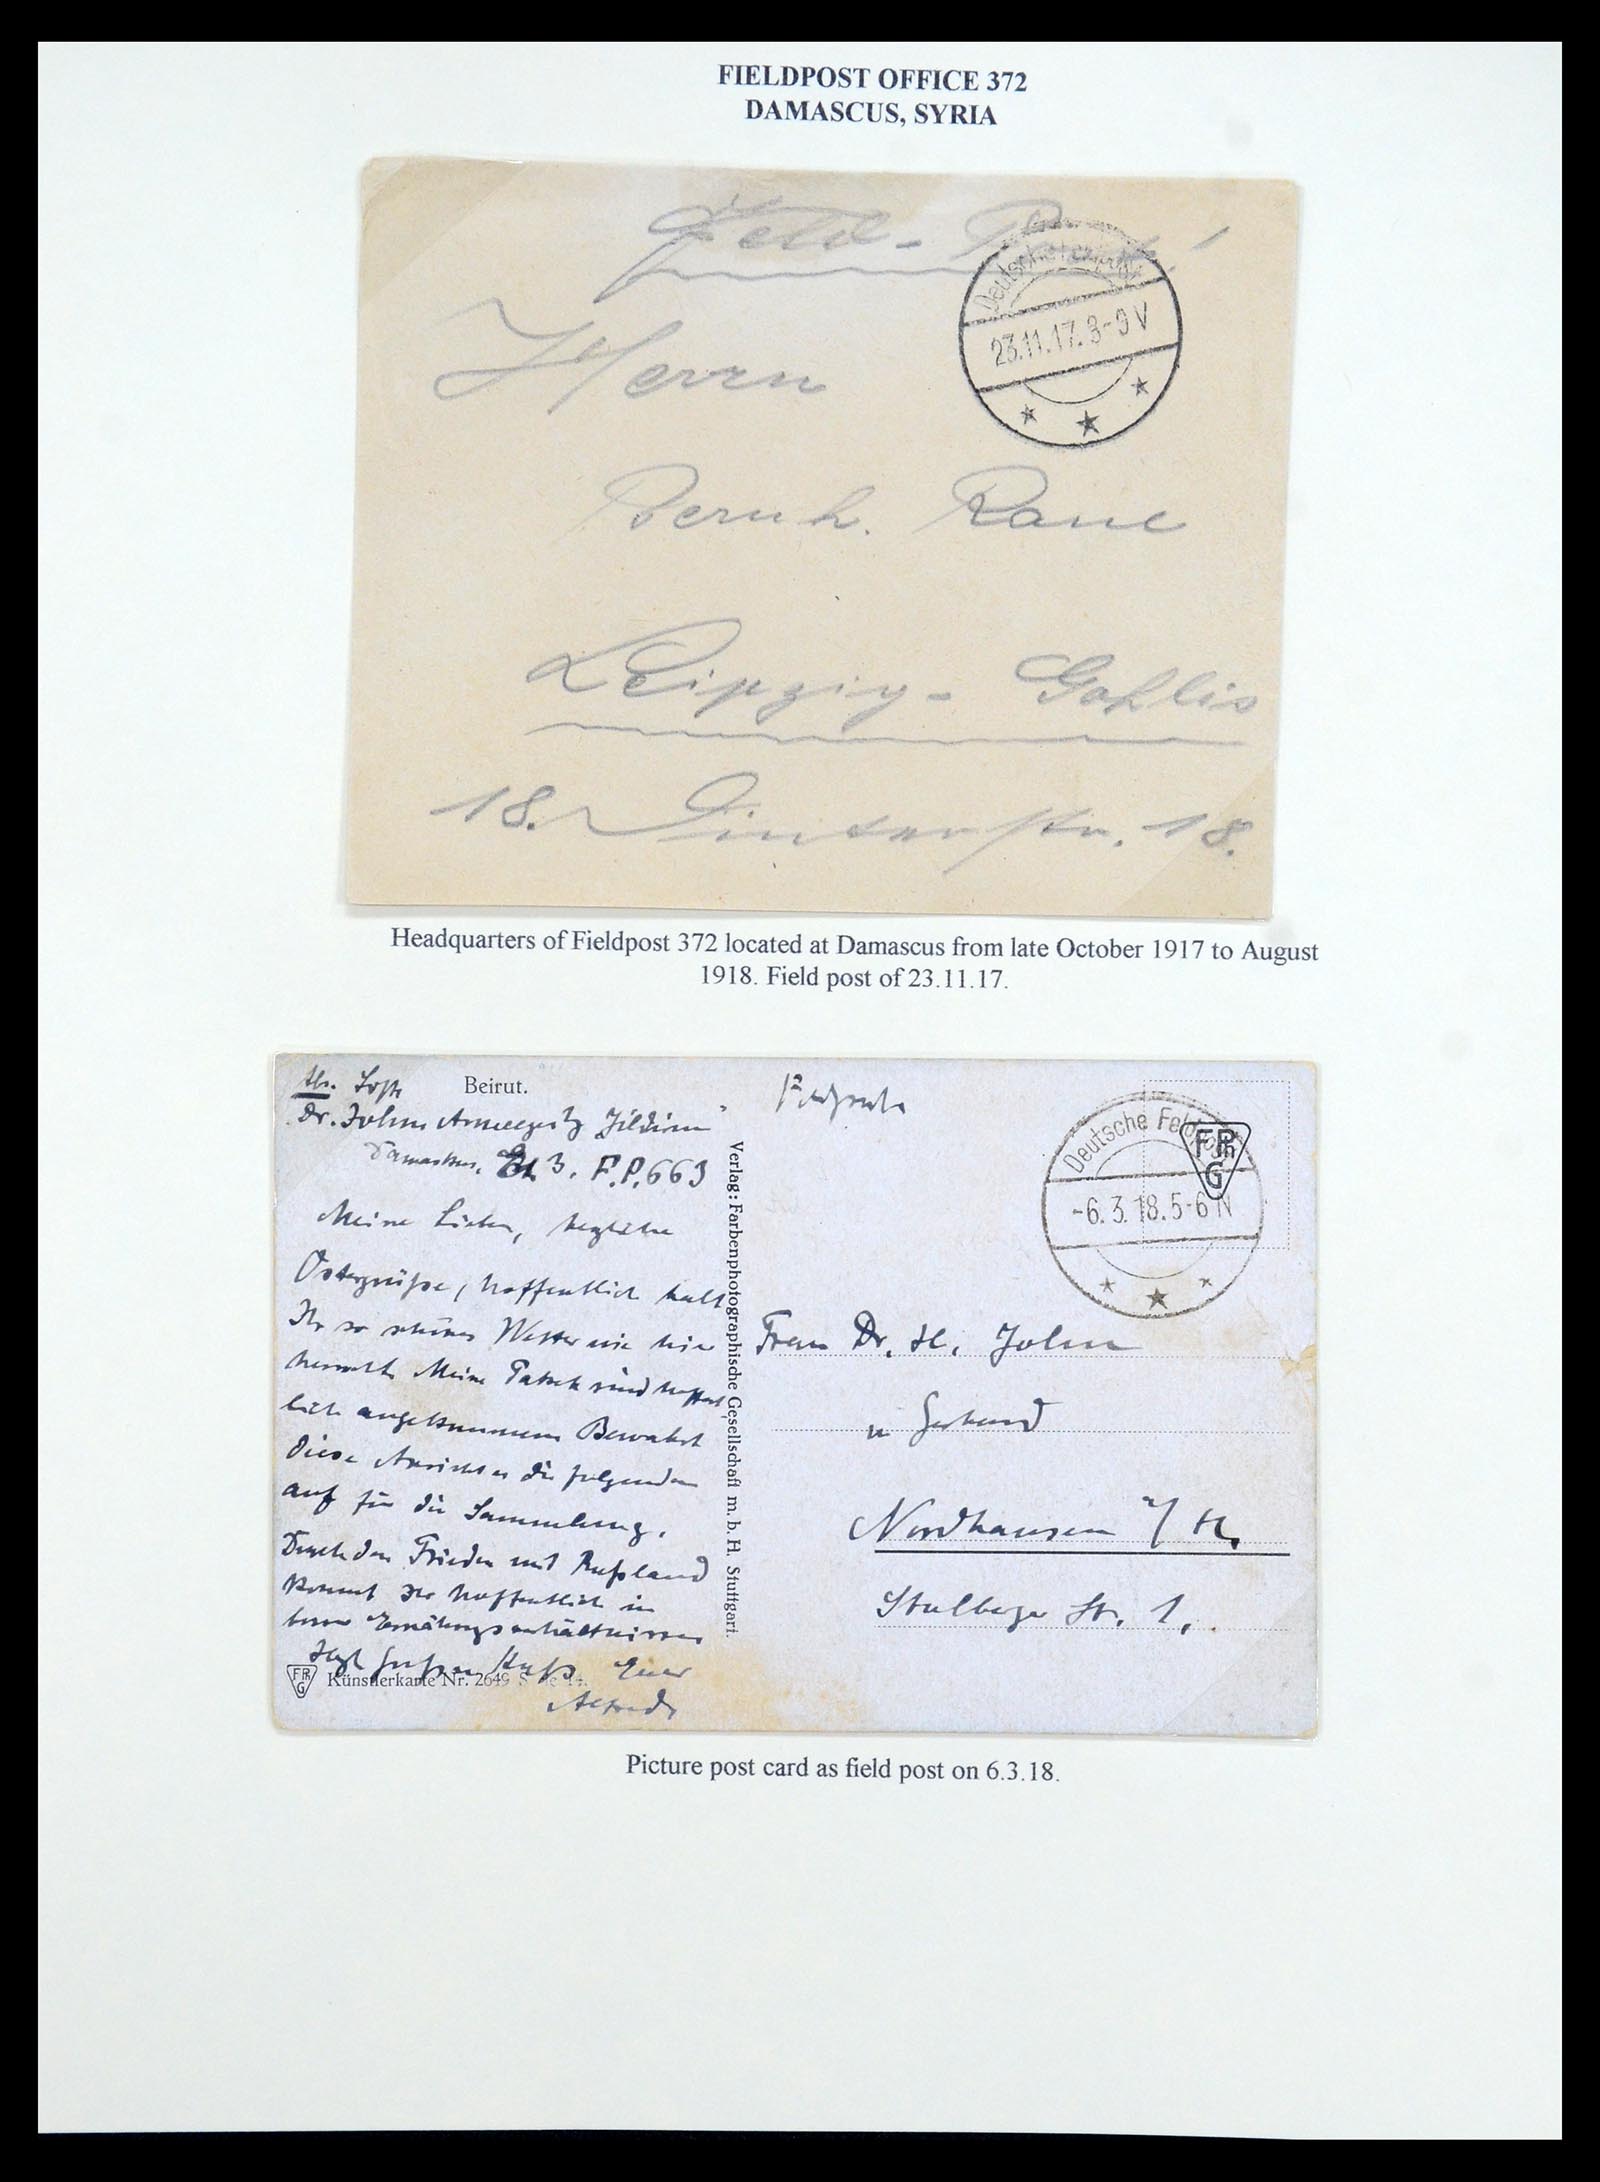 FIELDPOST OFFICE 372
DAMASCUS, SYRIA
Feld-Post!
Deutsche Feldpost
23.11.17. 8-9 V
Herrn
Bernh. Rane
Leipzig-Gohlis
18. Dinterstr. 18.
Headquarters of Fieldpost 372 located at Damascus from late October 1917 to August
1918. Field post of 23.11.17.
Beirut.
Dr. John Jildirim
Damaskus, 3. F.P. 663
Meine Lieben, herzliche
Ostergrüße, hoffentlich habt
Ihr so schönes Wetter wie hier
herrscht. Meine sind hoffent
lich angekommen Bewahrt
diese Ansicht u die folgenden
auf für die Sammlung.
Durch den Frieden mit Rußland
kommt Ihr hoffentlich in
Ernährungsverhältnisse
Euer
Alfred
FPhG
Künstlerkarte Nr. 2649
Verlag: Farbenphotographische Gesellschaft m. b. H. Stuttgart.
Feldpost
Deutsche Feldpost
-6. 3. 18. 5-6 N
FPhG
Frau Dr. H. John
u Gerhard
Nordhausen a/H.
Stolberger Str. 1.
Picture post card as field post on 6.3.18.